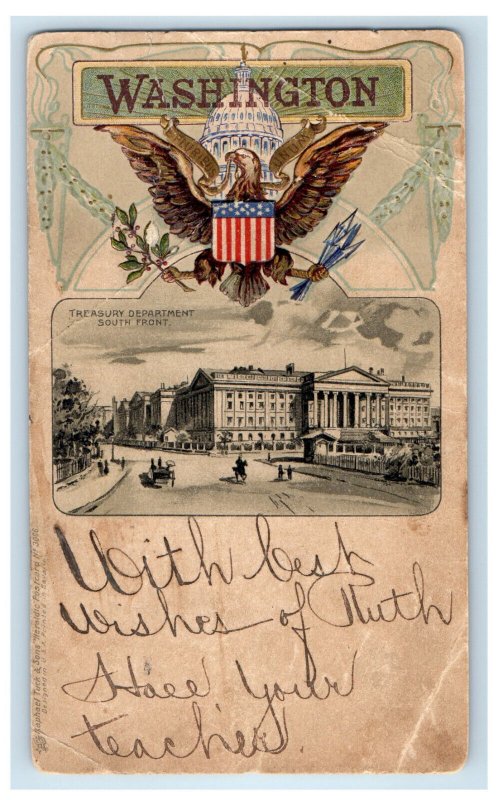 WASHINGTON
TREASURY DEPARTMENT
SOUTH FRONT.
With best
wishes of Ruth
Hall your
teacher.
Raphael Tuck & Sons' Heraldic Postcard Nº
Designed in U.S.A. Printed in